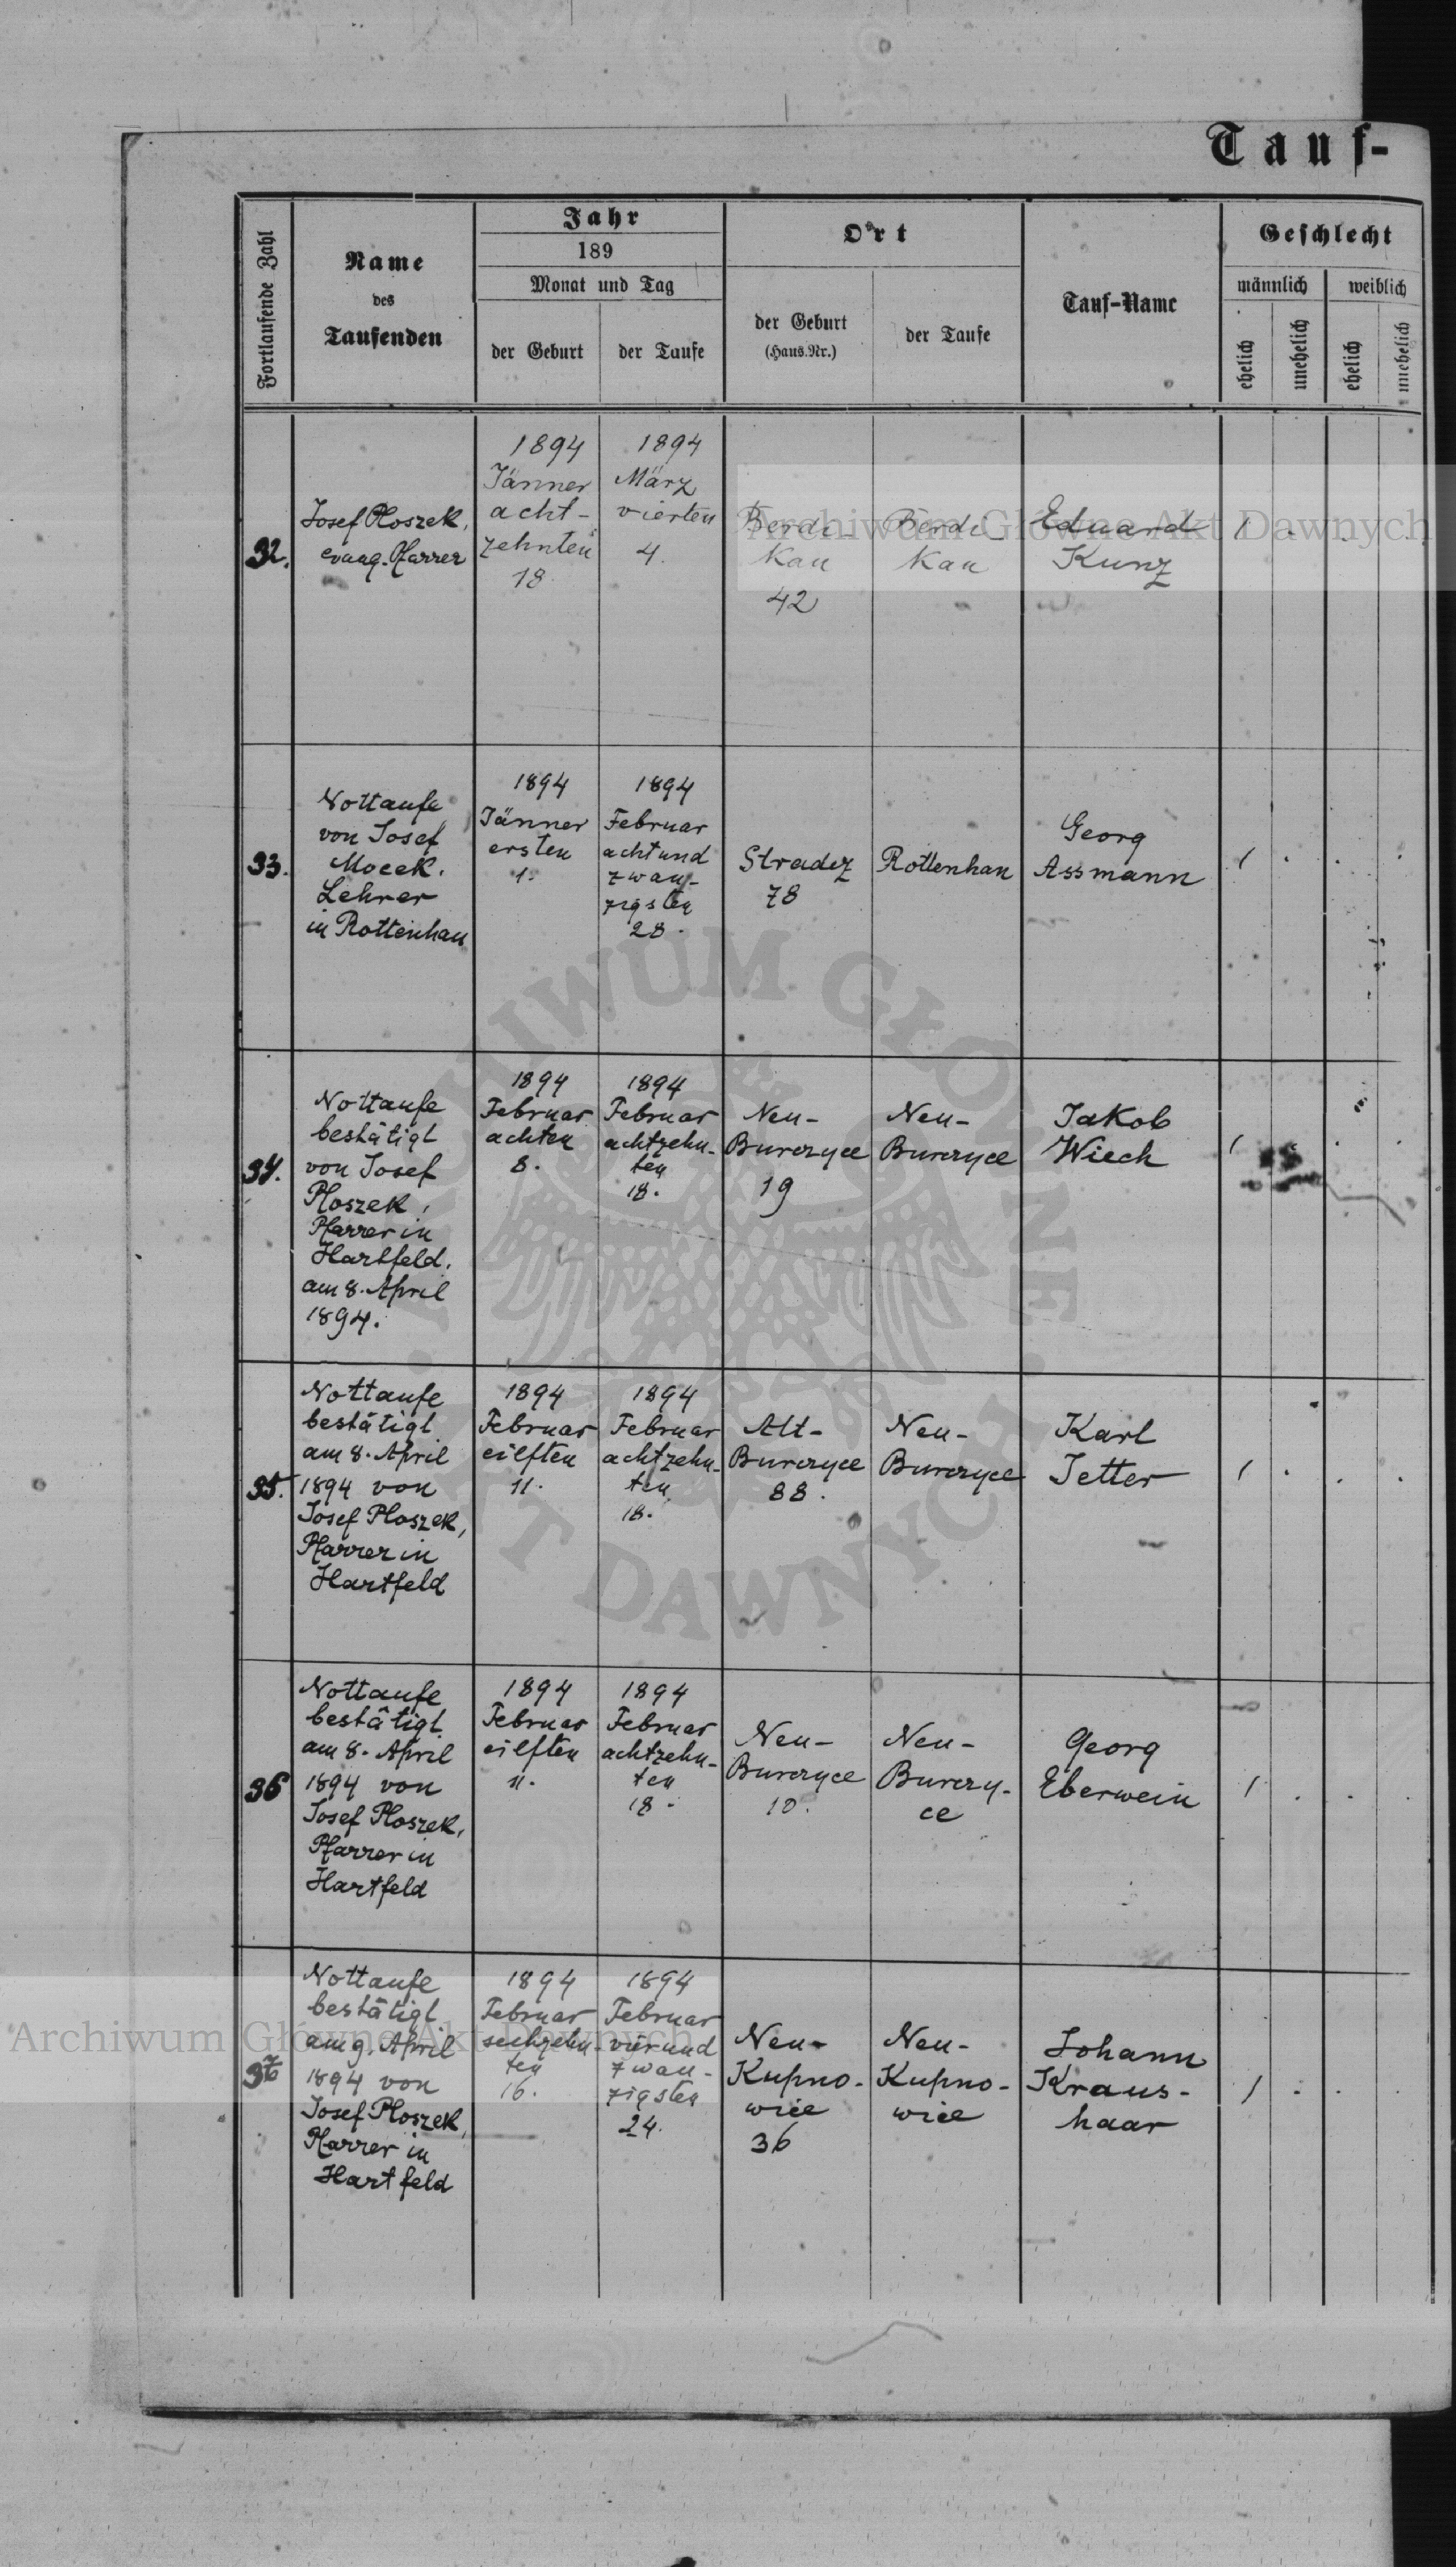 Tauf-
Fortlaufende Zahl
Name
des
Taufenden
Jahr
189
Monat und Tag
der Geburt
der Taufe
Ort
der Geburt
(Haus.Nr.)
der Taufe
Tauf-Name
Geschlecht
männlich
weiblich
ehelich
unehelich
ehelich
unehelich
32.
Josef Ploszek,
evang. Pfarrer
1894
Jänner
acht-
zehnten
18.
1894
März
vierten
4.
Berdi-
kau
42
Berdi-
kau
Eduard
Kunz
1 . . .
33.
Nottaufe
von Josef
Mocek.
Lehrer
in Rottenhan
1894
Jänner
ersten
1.
1894
Februar
achtund
zwan-
zigsten
28.
Stradcz
78
Rottenhan
Georg
Assmann
1 . . .
34.
Nottaufe
bestätigt
von Josef
Ploszek,
Pfarrer in
Hartfeld.
am 8. April
1894.
1894
Februar
achten
8.
1894
Februar
achtzehn-
ten
18.
Neu-
Burczyce
19
Neu-
Burczyce
Jakob
Wiech
1 . .
35.
Nottaufe
bestätigt
am 8. April
1894 von
Josef Ploszek,
Pfarrer in
Hartfeld
1894
Februar
eilften
11.
1894
Februar
achtzehn-
ten
18.
Alt-
Burczyce
88.
Neu-
Burczyce
Karl
Jetter
1 . . .
36
Nottaufe
bestätigt
am 8. April
1894 von
Josef Ploszek,
Pfarrer in
Hartfeld
1894
Februar
eilften
11.
1894
Februar
achtzehn-
ten
18.
Neu-
Burczyce
10.
Neu-
Burczy-
ce
Georg
Eberwein
1 . . .
37
Nottaufe
bestätigt
am 9. April
1894 von
Josef Ploszek,
Pfarrer in
Hartfeld
1894
Februar
sechzehn-
ten
16.
1894
Februar
vierund
zwan-
zigsten
24.
Neu-
Kupno-
wice
36
Neu-
Kupno-
wice
Johann
Kraus-
haar
1 . . .
Archiwum Główne Akt Dawnych
ARCHIWUM GŁÓWNE
AKT DAWNYCH
Archiwum Główne Akt Dawnych